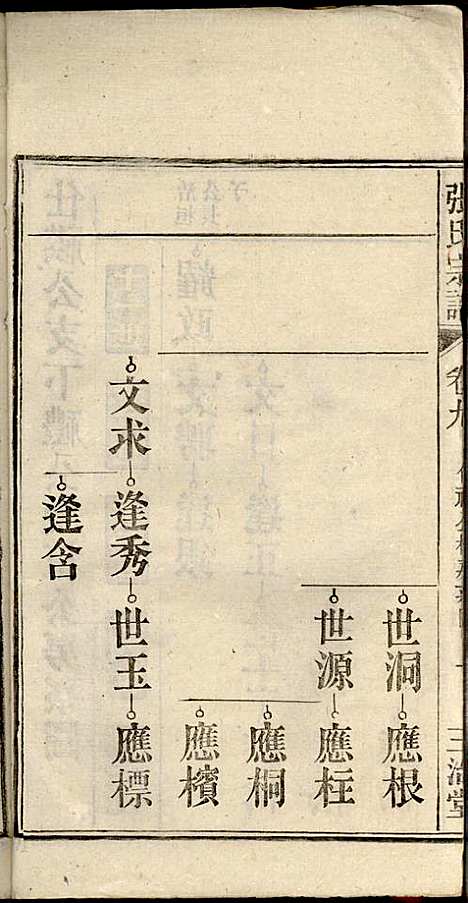 張氏宗譜
卷九
三治堂
世洞 應根
世源 應柱
應桐
應檳
文求 逢秀 世玉 應標
逢含